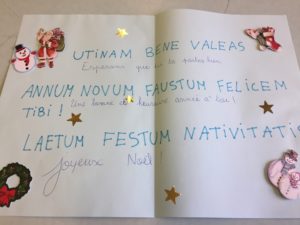 UTINAM BENE VALEAS
Espérons que tu te portes bien
ANNUM NOVUM FAUSTUM FELICEM
TIBI ! Une bonne et heureuse année à toi !
LAETUM FESTUM NATIVITATI
Joyeux Noël !